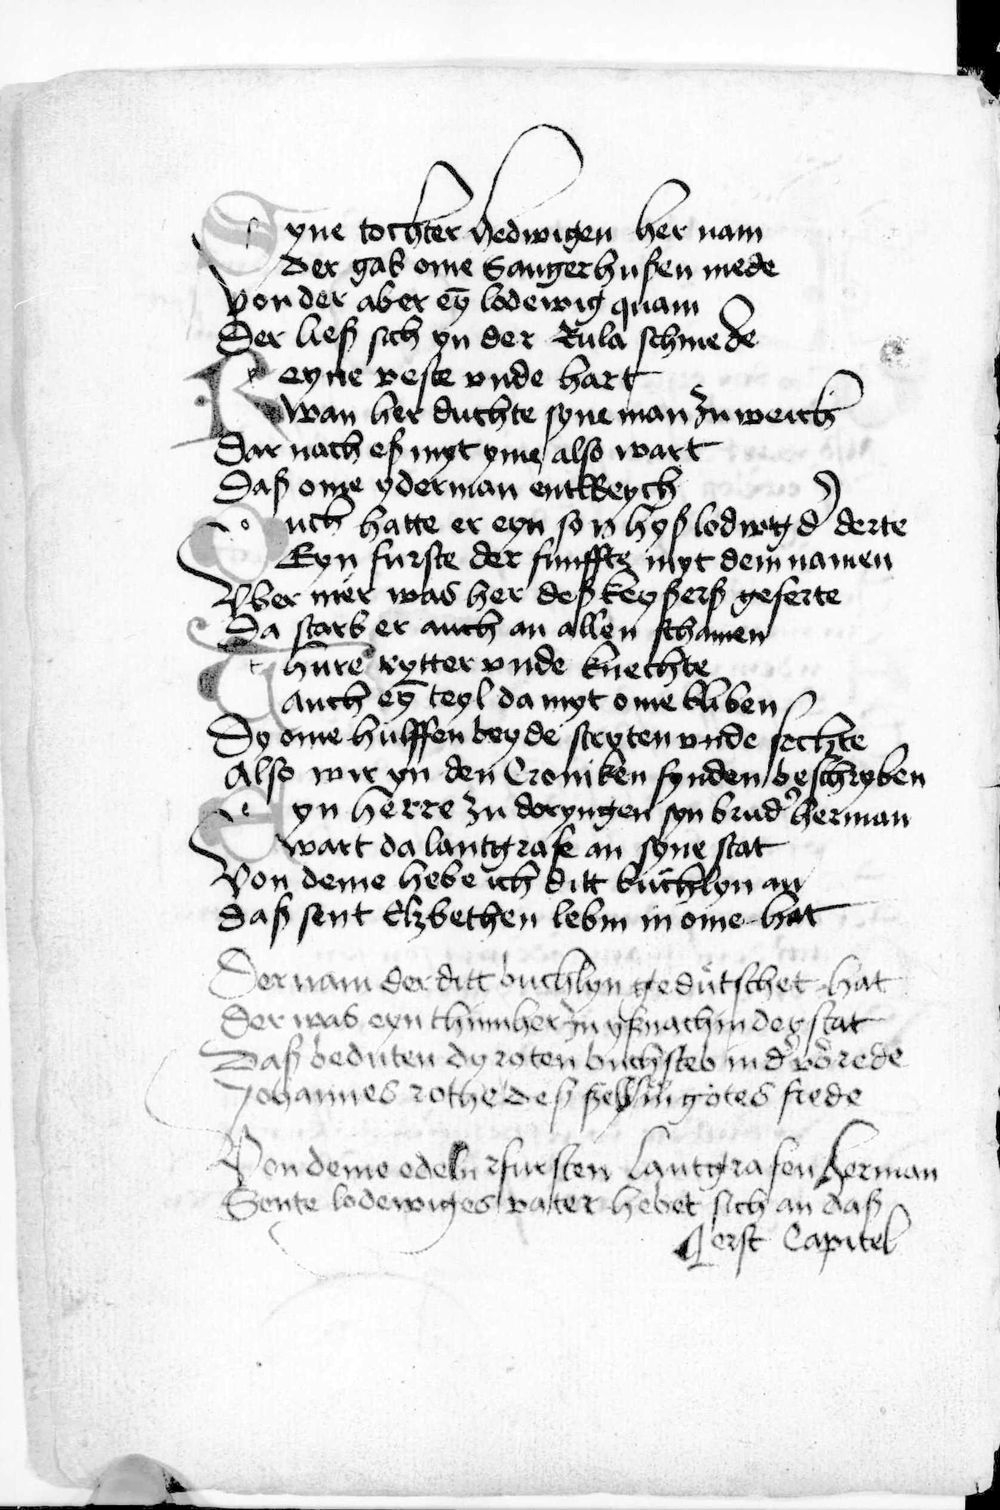 Syne tochter hedwigen her nam
Der gab ome Sangerhußen mede
Von der aber eyn̄ lodewig quam
Der ließ sich yn der Rula schmede
Keyne veste vnde hart
wan her duchte syne man zu weich
Dar nach eß myt yme also wart
Daß ome yderman entweych
Ouch hatte er eyn son hyß lodwig d' derte
Eyn furste der funffte myt dem namen
Vber mer was her deß keyßerß geferte
Da starb er auch an allen schamen
Thūre rytter vnde knechte
auch eyn̄ teyl da myt ome bliben
Dy ome hulffen beyde stryten vnde fechte
Also wir yn den Croniken fynden beschryben
Eyn herre zu doryngen syn brud' herman
wart da lantgrafe an syne stat
Von deme hebe ich ditt buchlyn an
daß sent Elzbethen lebin in ome hat
Der nam der ditt buchlyn gedutschet hat
der was eyn thumher zu yßnach in der stat
Daß beduten dy roten buchstebin d' vorede
Johannes rothe deß sy gotes frede
Von deme edeln fursten Lantgrafen herman
Sente lodewiges vater hebet sich an daß
erst Capitel